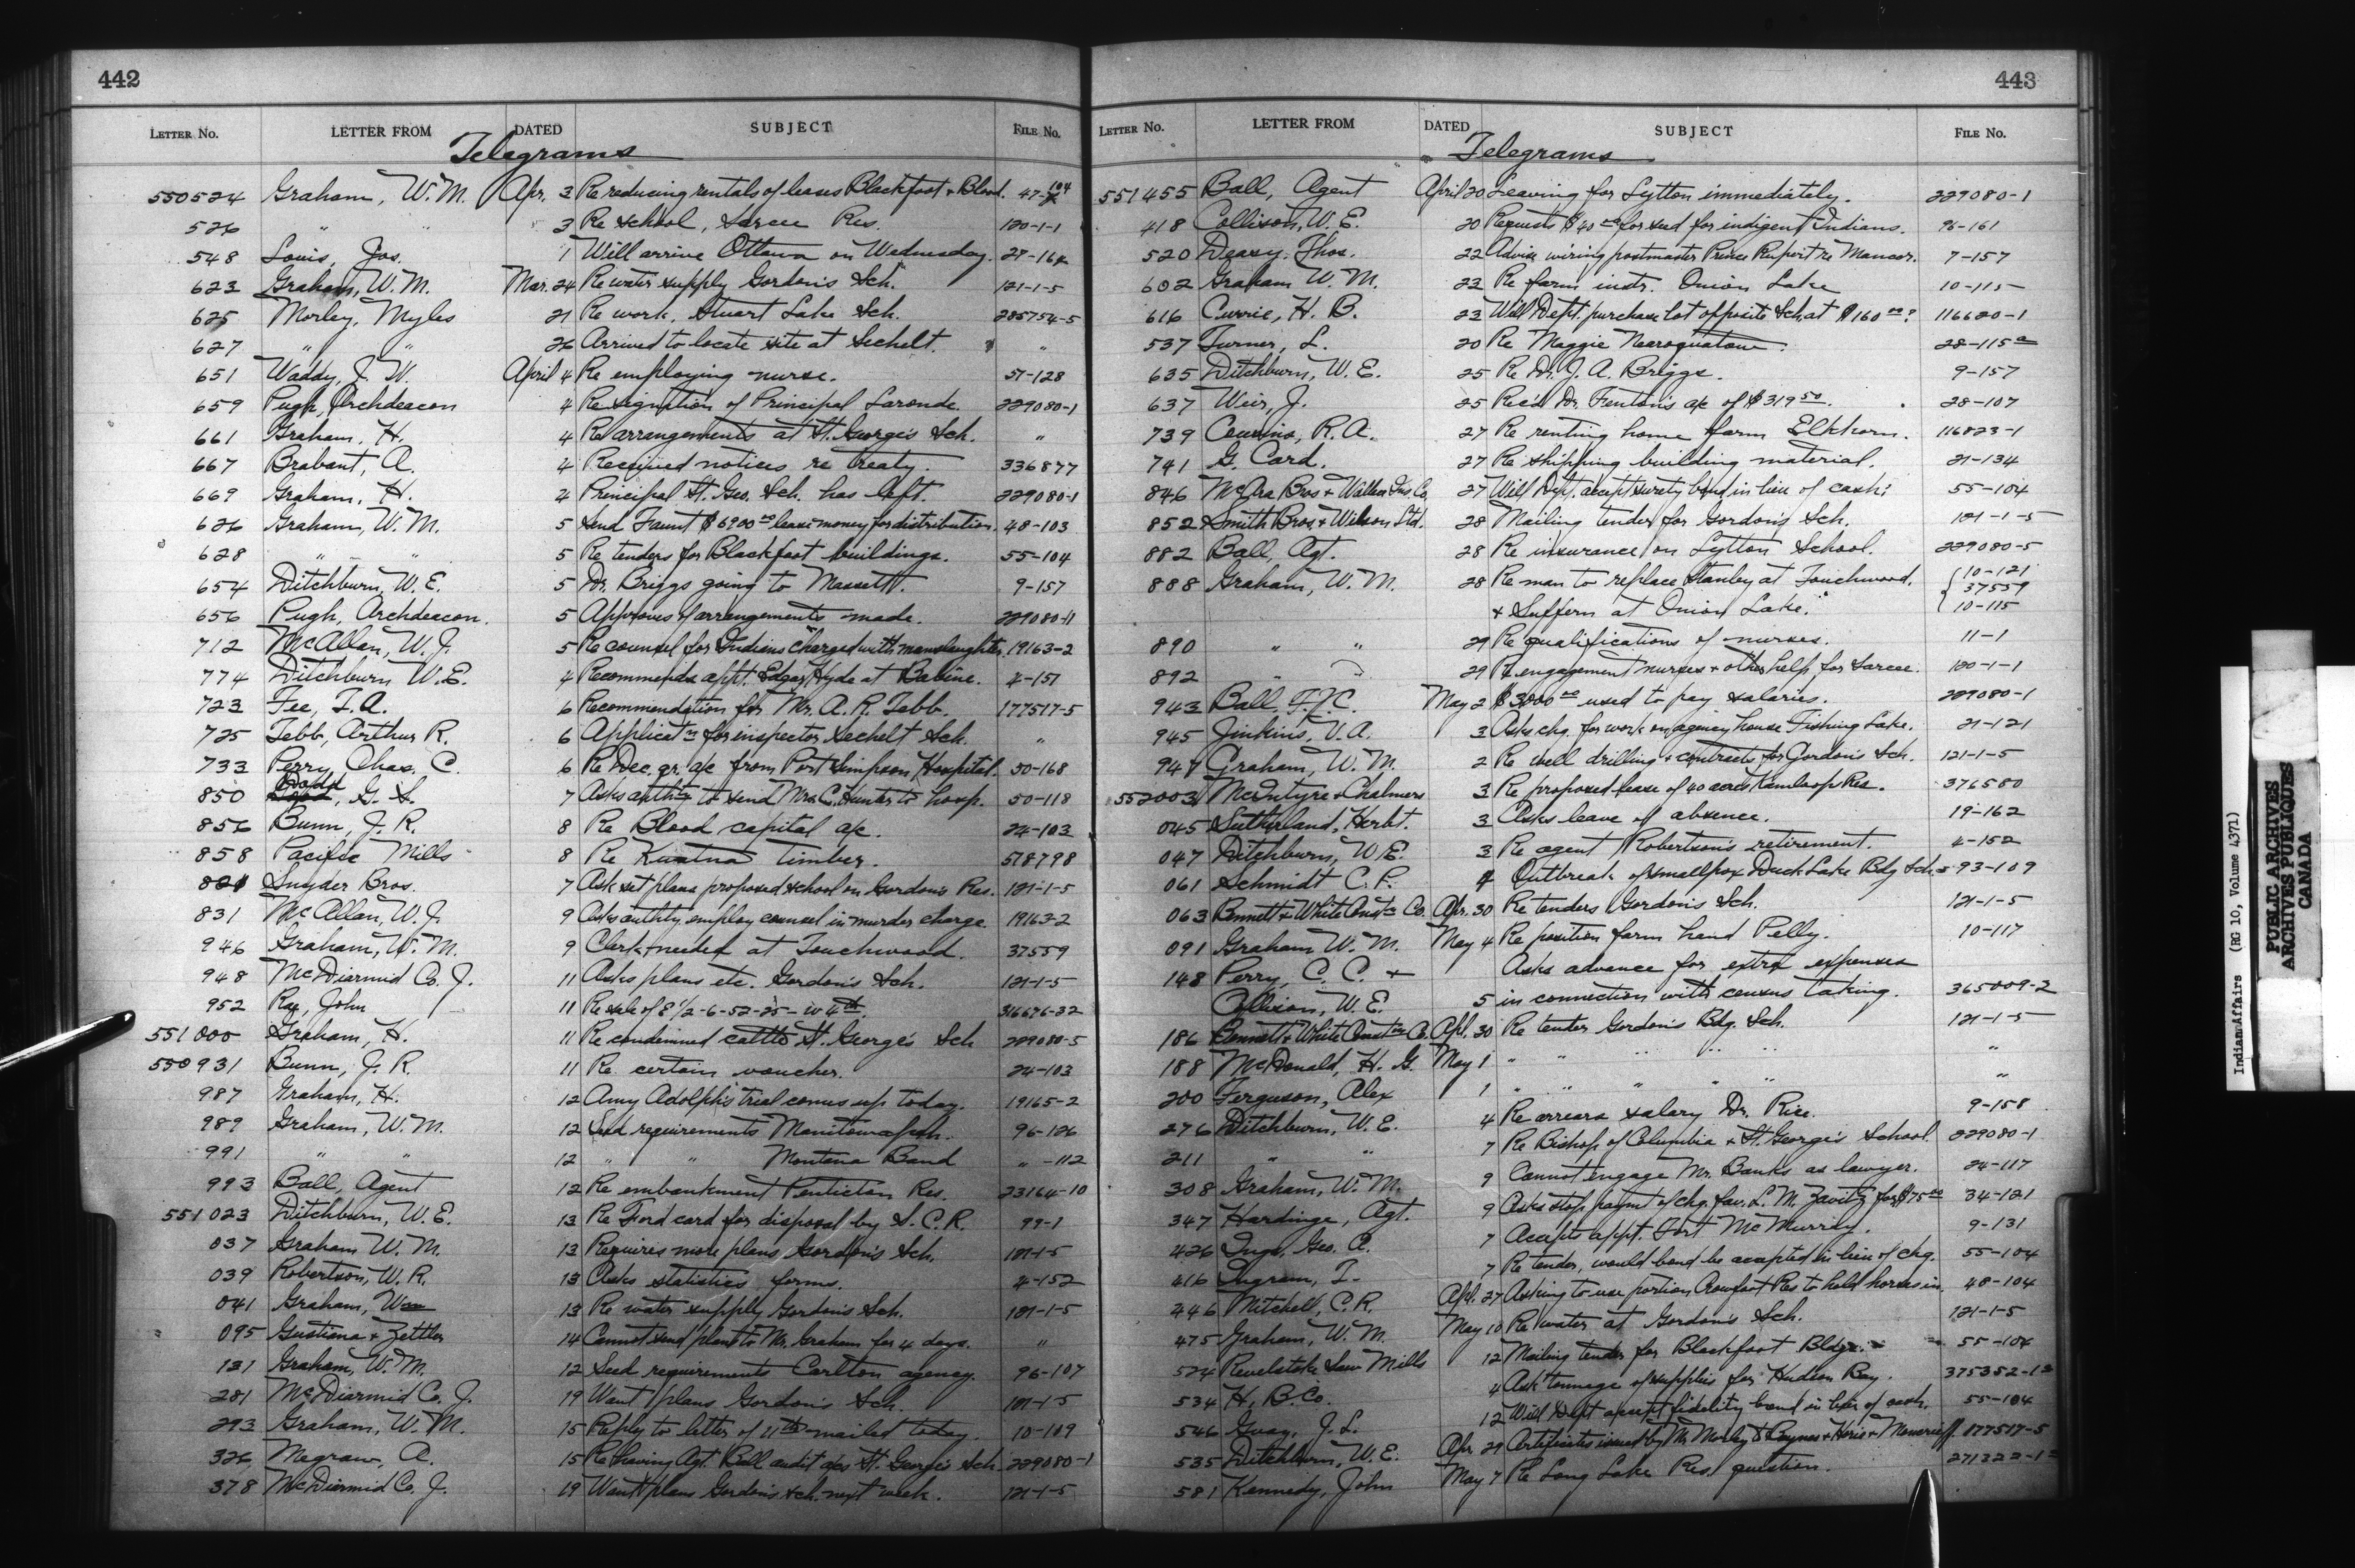 442
LETTER No. LETTER FROM DATED SUBJECT FILE No.
Telegrams
550524 Graham, W.M. Apr. 3 Re reducing rentals of leases Blackfoot & Blood. 47-104
526 " " 3 Re school, Sarcee Res. 120-1-1
548 Louis, Jos. 1 Will arrive Ottawa on Wednesday. 27-162
623 Graham, W.M. Mar. 24 Re water supply Gordon's Sch. 121-1-5
625 Morley, Myles 21 Re work, Stuart Lake Sch. 285754-5
627 " " 26 Arrived to locate site at Sechelt. "
651 Waddy, J. W. April 4 Re employing nurse. 57-128
659 Pugh, Archdeacon 4 Resignation of Principal Laronde. 229080-1
661 Graham, H. 4 Re arrangements at St. George's Sch. "
667 Brabant, A. 4 Received notices re treaty. 336877
669 Graham, H. 4 Principal St. Geo. Sch. has left. 229080-1
626 Graham, W.M. 5 Send Faunt $6900.00 lease money for distribution. 48-103
628 " " 5 Re tenders for Blackfoot buildings. 55-104
654 Ditchburn, W.E. 5 Dr. Briggs going to Massett. 9-157
656 Pugh, Archdeacon. 5 Approves of arrangements made. 229080-1
712 McAllan, W.J. 5 Re counsel for Indians charged with manslaughter. 19163-2
774 Ditchburn W.E. 4 Recommends appt. Edgar Hyde at Babine. 4-151
723 Fee, T.A. 6 Recommendation for Mr. A.R. Tebb. 177517-5
725 Tebb, Arthur R. 6 Applicatn for inspector Sechelt Sch. "
733 Perry, Chas. C. 6 Re Dec. qr. a/c from Port Simpson Hospital. 50-168
850 Dodd, G. S. 7 Asks authty to send Mrs C. Hunter to hosp. 50-118
856 Bunn, J.R. 8 Re Blood capital a/c. 24-103
858 Pacific Mills 8 Re Kwatna timber. 578798
821 Snyder Bros. 7 Ask set plans proposed school on Gordon's Res. 121-1-5
831 McAllan, W.J. 9 Asks authty employ counsel in murder charge. 19163-2
946 Graham, W.M. 9 Clerk needed at Touchwood. 37559
948 McDiarmid Co. J. 11 Asks plans etc. Gordon's Sch. 121-1-5
952 Rae, John 11 Re sale of E 1/2-6-52-25-W 4th. 316676-32
551000 Graham, H. 11 Re condemned cattle St. George's Sch 229080-5
550931 Bunn, J.R. 11 Re certain voucher. 24-103
987 Graham, H. 12 Amy Adolph's trial comes up today. 19165-2
989 Graham, W.M. 12 Seed requirements Manitowapah. 96-126
991 " " 12 " " Montana Band " -112
993 Ball, Agent 12 Re embankment Penticton Res. 23164-10
551023 Ditchburn, W.E. 13 Re Ford card for disposal by S.C.R. 99-1
037 Graham W.M. 13 Requires more plans Gordon's Sch. 121-1-5
039 Robertson, W.R. 13 Asks statistics forms. 4-152
041 Graham, Wm 13 Re water supply Gordon's Sch. 121-1-5
095 Gustiana & Zettler 14 Cannot send plans to Mr. Graham for 4 days. "
131 Graham, W.M. 12 Seed requirements Carlton agency. 96-107
281 McDiarmid Co. J. 19 Want plans Gordon's Sch. 121-1-5
293 Graham, W.M. 15 Reply to letter of 11th mailed today. 10-109
326 Megraw, A. 15 Re having Agt. Ball audit a/cs St. George's Sch. 229080-1
378 McDiarmid Co. J. 19 Want plans Gordon's Sch. next week. 121-1-5
443
LETTER No. LETTER FROM DATED SUBJECT FILE No.
Telegrams
551455 Ball, Agent April 20 Leaving for Lytton immediately. 229080-1
418 Collison, W.E. 20 Requests $40.00 for seed for indigent Indians. 96-161
520 Deasy, Thos. 22 Advise wiring postmaster Prince Rupert re 7-157
602 Graham W.M. 22 Re farm instr. Onion Lake 10-115
616 Currie, H.B. 23 Will Dept. purchase lot opposite Sch. at $160.00? 116620-1
537 Turner, L. 20 Re Maggie 28-115a
635 Ditchburn, W.E. 25 Re Dr. J.A. Briggs. 9-157
637 Weir, J. 25 Rec'd Dr. Fenton's a/c of $319.50. 28-107
739 Cousins, R.A. 27 Re renting home farm Elkhorn. 116823-1
741 G. Card. 27 Re shipping building material. 21-134
846 McAra Bros & Wallace Ins. Co. 27 Will Dept. accept surety bond in lieu of cash? 55-104
852 Smith Bros. & Wilson Ltd. 28 Mailing tender for Gordon's Sch. 121-1-5
882 Ball, Agt. 28 Re insurance on Lytton School. 229080-5
888 Graham, W.M. 28 Re man to replace Stanley at Touchwood, 10-121
37559
& Suffern at Onion Lake. 10-115
890 " " 29 Re qualifications of nurses. 11-1
892 " " 29 Re engagement nurses & other help for Sarcee. 120-1-1
943 Ball F.J.C. May 2 $3000.00 used to pay salaries. 229080-1
945 Jinkins, V.A. 3 Asks chq. for work on agency house Fishing Lake. 21-121
947 Graham, W.M. 2 Re well drilling & contracts for Gordon's Sch. 121-1-5
552003 McIntyre & Chalmers 3 Re proposed lease of 40 acres Kamloops Res. 376580
045 Sutherland, Herbt. 3 Asks leave of absence. 19-162
047 Ditchburn, W.E. 3 Re agent Robertson's retirement. 4-152
061 Schmidt C.P. 4 Outbreak of smallpox Duck Lake Bdg Sch. 593-109
063 Bennett & White Constn Co. Apr. 30 Re tenders Gordon's Sch. 121-1-5
091 Graham W.M. May 4 Re position farm hand Pelly. 10-117
148 Perry, C.C. & Asks advance for extra expenses
Collison, W.E. 5 in connection with census taking. 365009-2
186 Bennett & White Constn Co. Apl. 30 Re tender Gordon's Bdg. Sch. 121-1-5
188 McDonald, H.G. May 1 " " " " " "
200 Ferguson, Alex 1 " " " " " "
276 Ditchburn, W.E. 4 Re arrears salary Dr. Rice. 9-158
211 " " 7 Re Bishop of Columbia & St. George's School. 229080-1
308 Graham, W.M. 9 Cannot engage Mr. Banks as lawyer. 24-117
347 Hardinge, Agt. 9 Asks stop paymt of chq. fav. L.M. Zavitz for $75.00 34-121
426 Geo. A. 7 Accepts appt. Fort McMurray. 9-131
416 Ingram, T. 7 Re tender, would bond be accepted in lieu of chq. 55-104
446 Mitchell, C.R. Apl. 27 Asking to use portion Crowfoot Res to hold horses in. 48-104
475 Graham, W.M. May 10 Re water at Gordon's Sch. 121-1-5
524 Revelstoke Saw Mills 12 Mailing tender for Blackfoot Bldgs. 55-104
534 H.B. Co. 4 Ask tonnage of supplies for Hudson Bay. 375352-12
546 Guay, J.L. 12 Will Dept accept fidelity bond in lieu of cash. 55-104
535 Ditchburn, W.E. Apr. 29 Certificates issued by Mr. Morley to Baynes & Horie & Moncrieff. 177517-5
581 Kennedy, John May 7 Re Long Lake Res. question. 271322-1
Indian Affairs (RG 10, Volume 4371)
PUBLIC ARCHIVES
ARCHIVES PUBLIQUES
CANADA